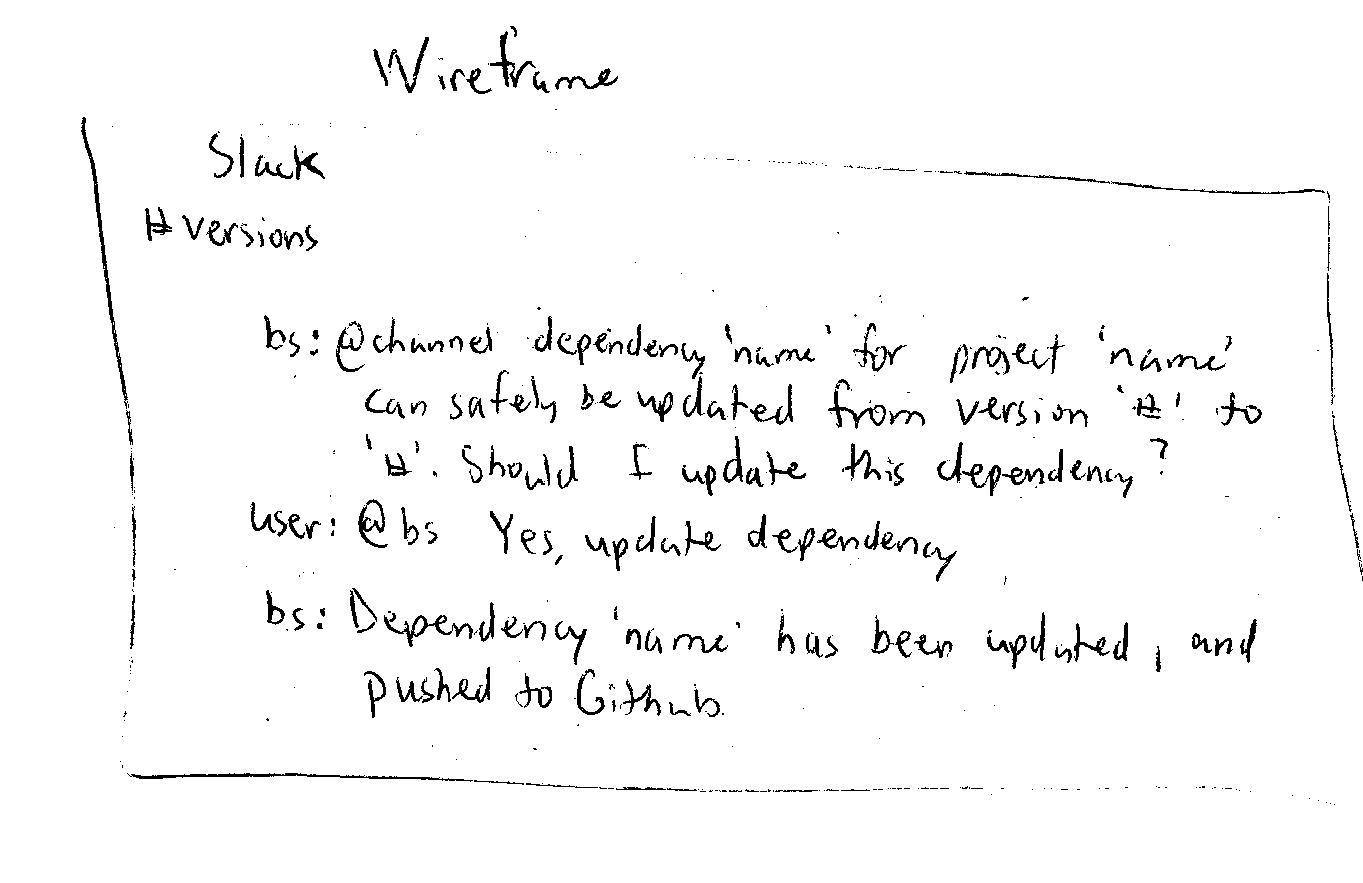 Wireframe
Slack
#versions
bs: @channel dependency 'name' for project 'name'
can safely be updated from version '#' to
'#'. Should I update this dependency?
user: @bs Yes, update dependency
bs: Dependency 'name' has been updated, and
pushed to Github